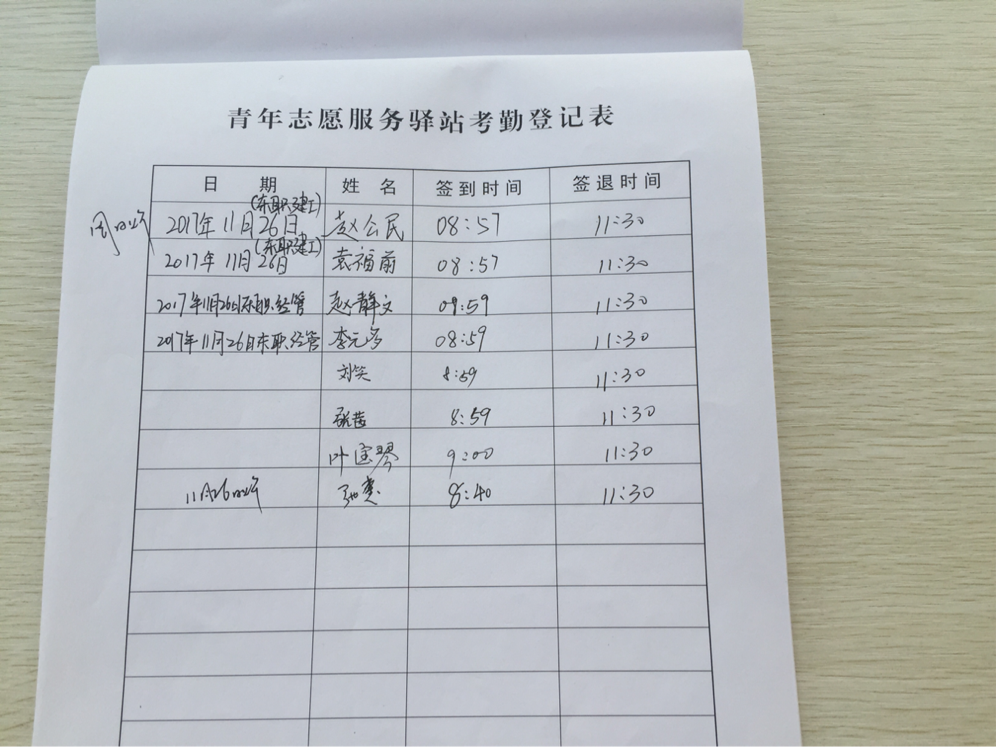 青年志愿服务驿站考勤登记表
日 期 姓 名 签到时间 签退时间
(东职建工)
2017年11月26日 赵公民 08:57 11:30
(东职建工)
2017年11月26日 袁福前 08:57 11:30
2017年11月26日东职经管 赵静文 08:59 11:30
2017年11月26日东职经管 李元 08:59 11:30
刘笑 8:59 11:30
张茜 8:59 11:30
叶 琴 9:00 11:30
11月26日 8:40 11:30